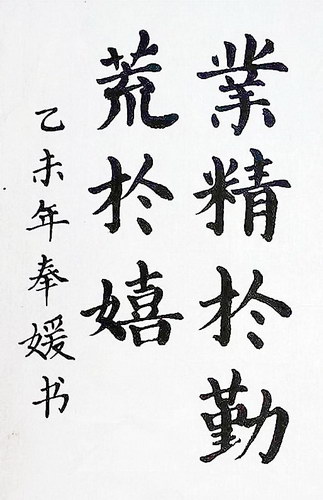 業精於勤
荒於嬉
乙未年奉媛书